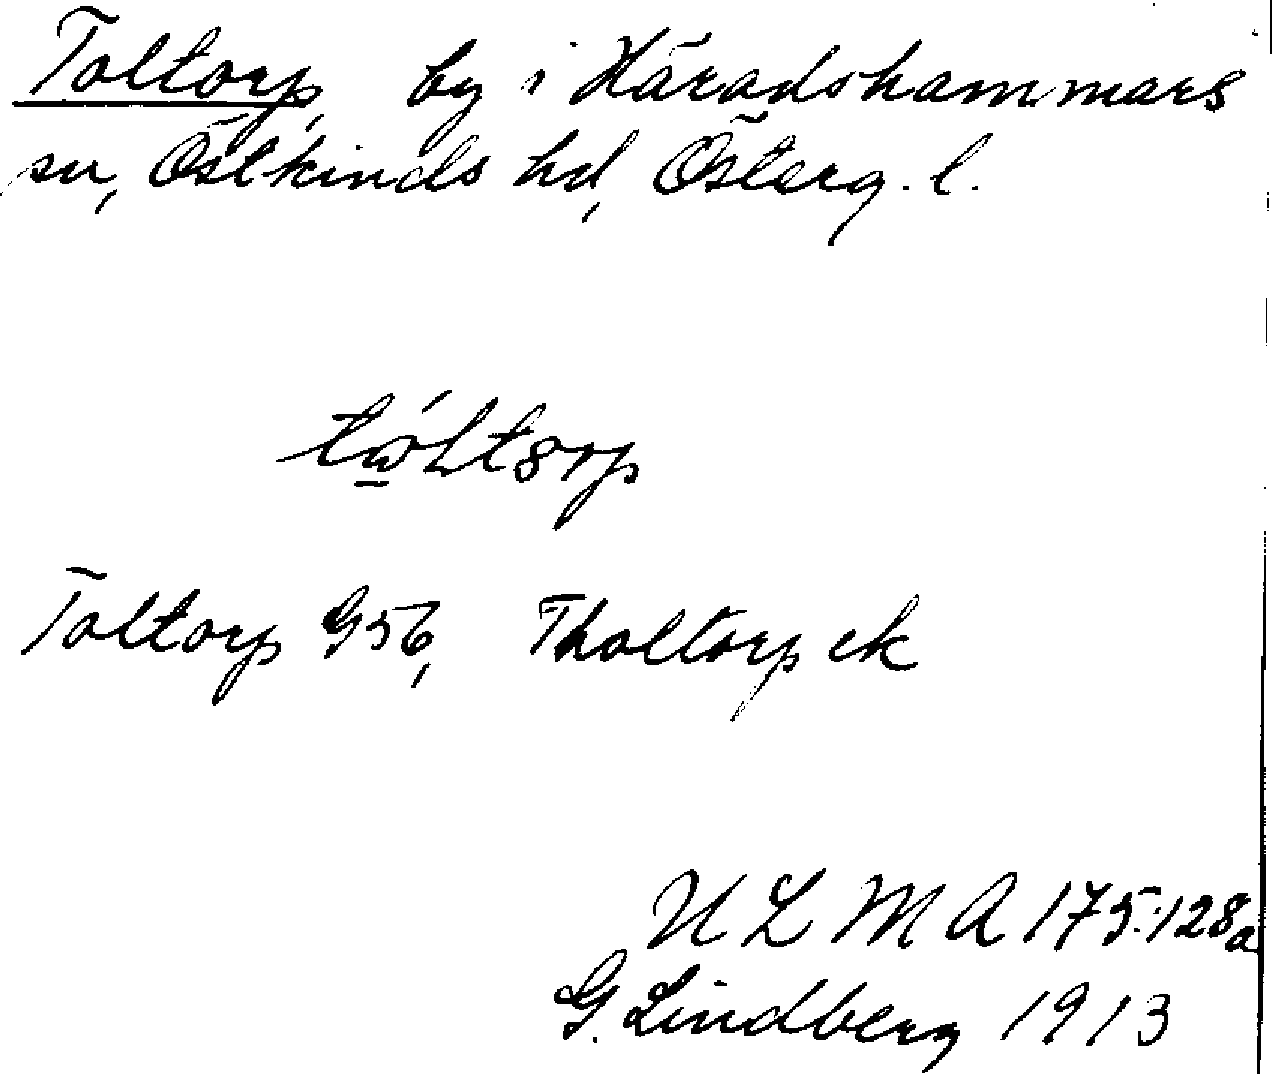 Toltorp, by i Häradshammars
sn, Östkinds hd, Österg. l.
Toltorp G56, Tholtorp ek
U L M A 175:128a
G. Lindberg 1913